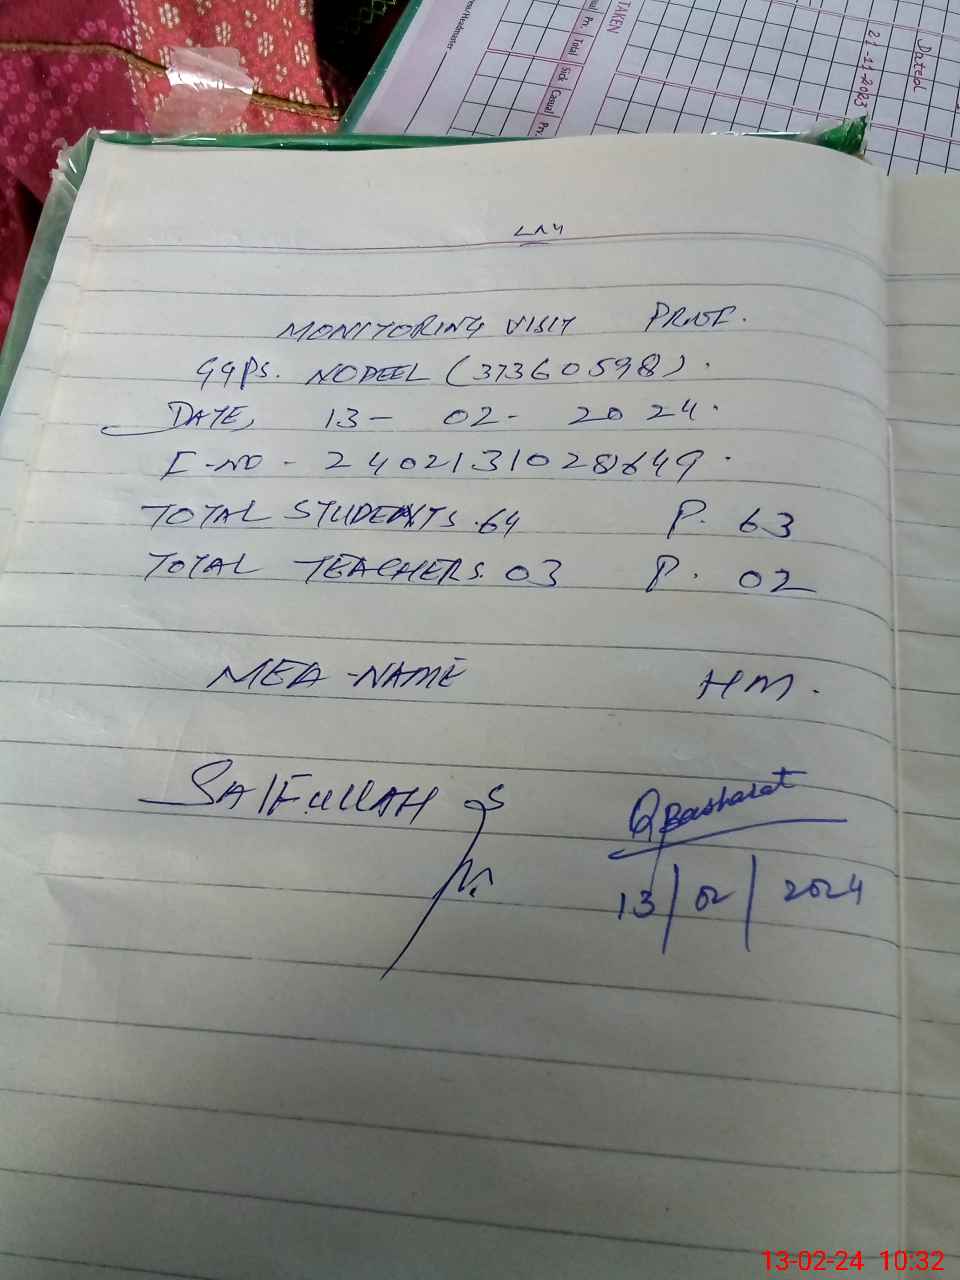 TAKEN
Dated
21-11-2023
ess/Headmaster
ual Prv. Total Sick Casual Prv.
MONITORING VISIT PROF.
GGPS. NODEEL (37360598).
DATE, 13- 02- 2024.
TOTAL STUDENTS. 64 P. 63
TOTAL TEACHERS. 03 P. 02
MEA -NAME HM.
SAIFULLAH QBasharat
13/02/2024
13-02-24 10:32